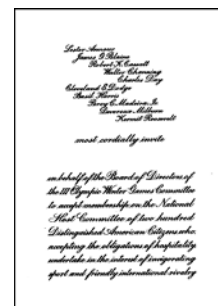 Lester Armour
James G. Blaine
Robert K. Cassatt
Walter Channing
Charles Day
Cleveland E. Dodge
Basil Harris
Percy C. Madeira, Jr.
Devereux Milburn
Kermit Roosevelt
most cordially invite
on behalf of the Board of Directors of
the III Olympic Winter Games Committee
to accept membership on the National
Host Committee of two hundred
Distinguished American Citizens who
accepting the obligations of hospitality
undertake in the interest of invigorating
sport and friendly international rivalry